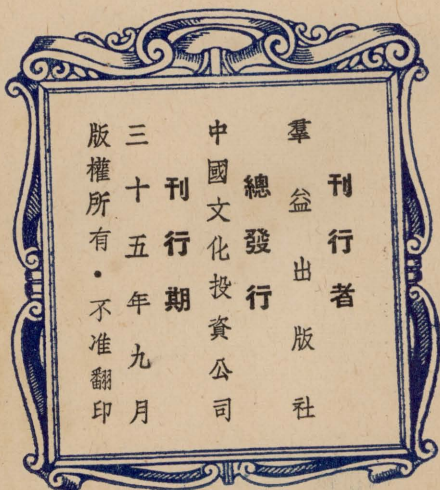 刊行者
羣益出版社
總發行
中國文化投資公司
刊行期
三十五年九月
版權所有・不准翻印